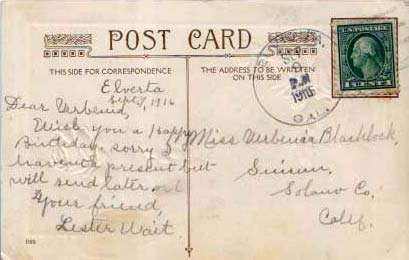 POST CARD
THIS SIDE FOR CORRESPONDENCE
THE ADDRESS TO BE WRITTEN
ON THIS SIDE
Elverta
Sept 1916
Dear Verbenia,
Wish you a Happy
Birthday, sorry I
haven't a present but
will send later on
Your friend,
Lester Wait.
Miss Verbenia Blacklock,
Suisun,
Solano Co.
Calif.
P.M
1916
CAL.
U.S. POSTAGE
1 CENTS 1